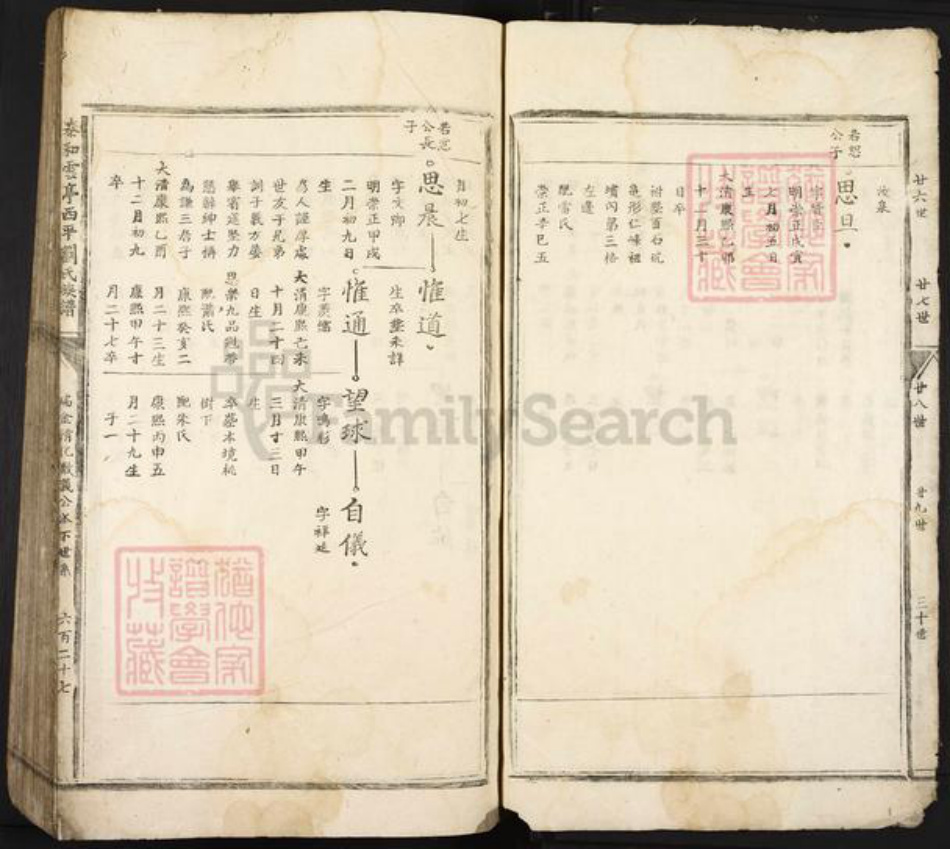 廿六世
廿七世
廿八世
廿九世
三十世
汝泉
若思
公子
思旦
明崇正戊寅
七月初五日
生
大清康熙己卯
十二月三十
日卒
龜形仁峰祖
墳內第三格
左邊
配雷氏
崇正辛巳五
月初七生
若思
公長
子
思晨
字文卿
明崇正甲戌
二月初九日
生
為人謹厚處
世友于兄弟
訓子義方屢
舉賓筵墊力
懇辭紳士稱
為謙三君子
大清康熙乙酉
十二月初九
卒
惟道
生卒塟未詳
惟通
大清康熙己未
十月二十四
日生
恩榮九品冠帶
配蕭氏
康熙癸亥二
月二十三生
康熙甲午十
月二十七卒
望球
字鳴彩
大清康熙甲午
三月十三日
生
卒塟木境桃
樹下
配朱氏
康熙丙申五
月二十九生
子一
自儀
字祥廷
泰和雲亭西平劉氏族譜
六百二十七
猶他家
譜學會
收藏
猶他家
譜學會
收藏
FamilySearch